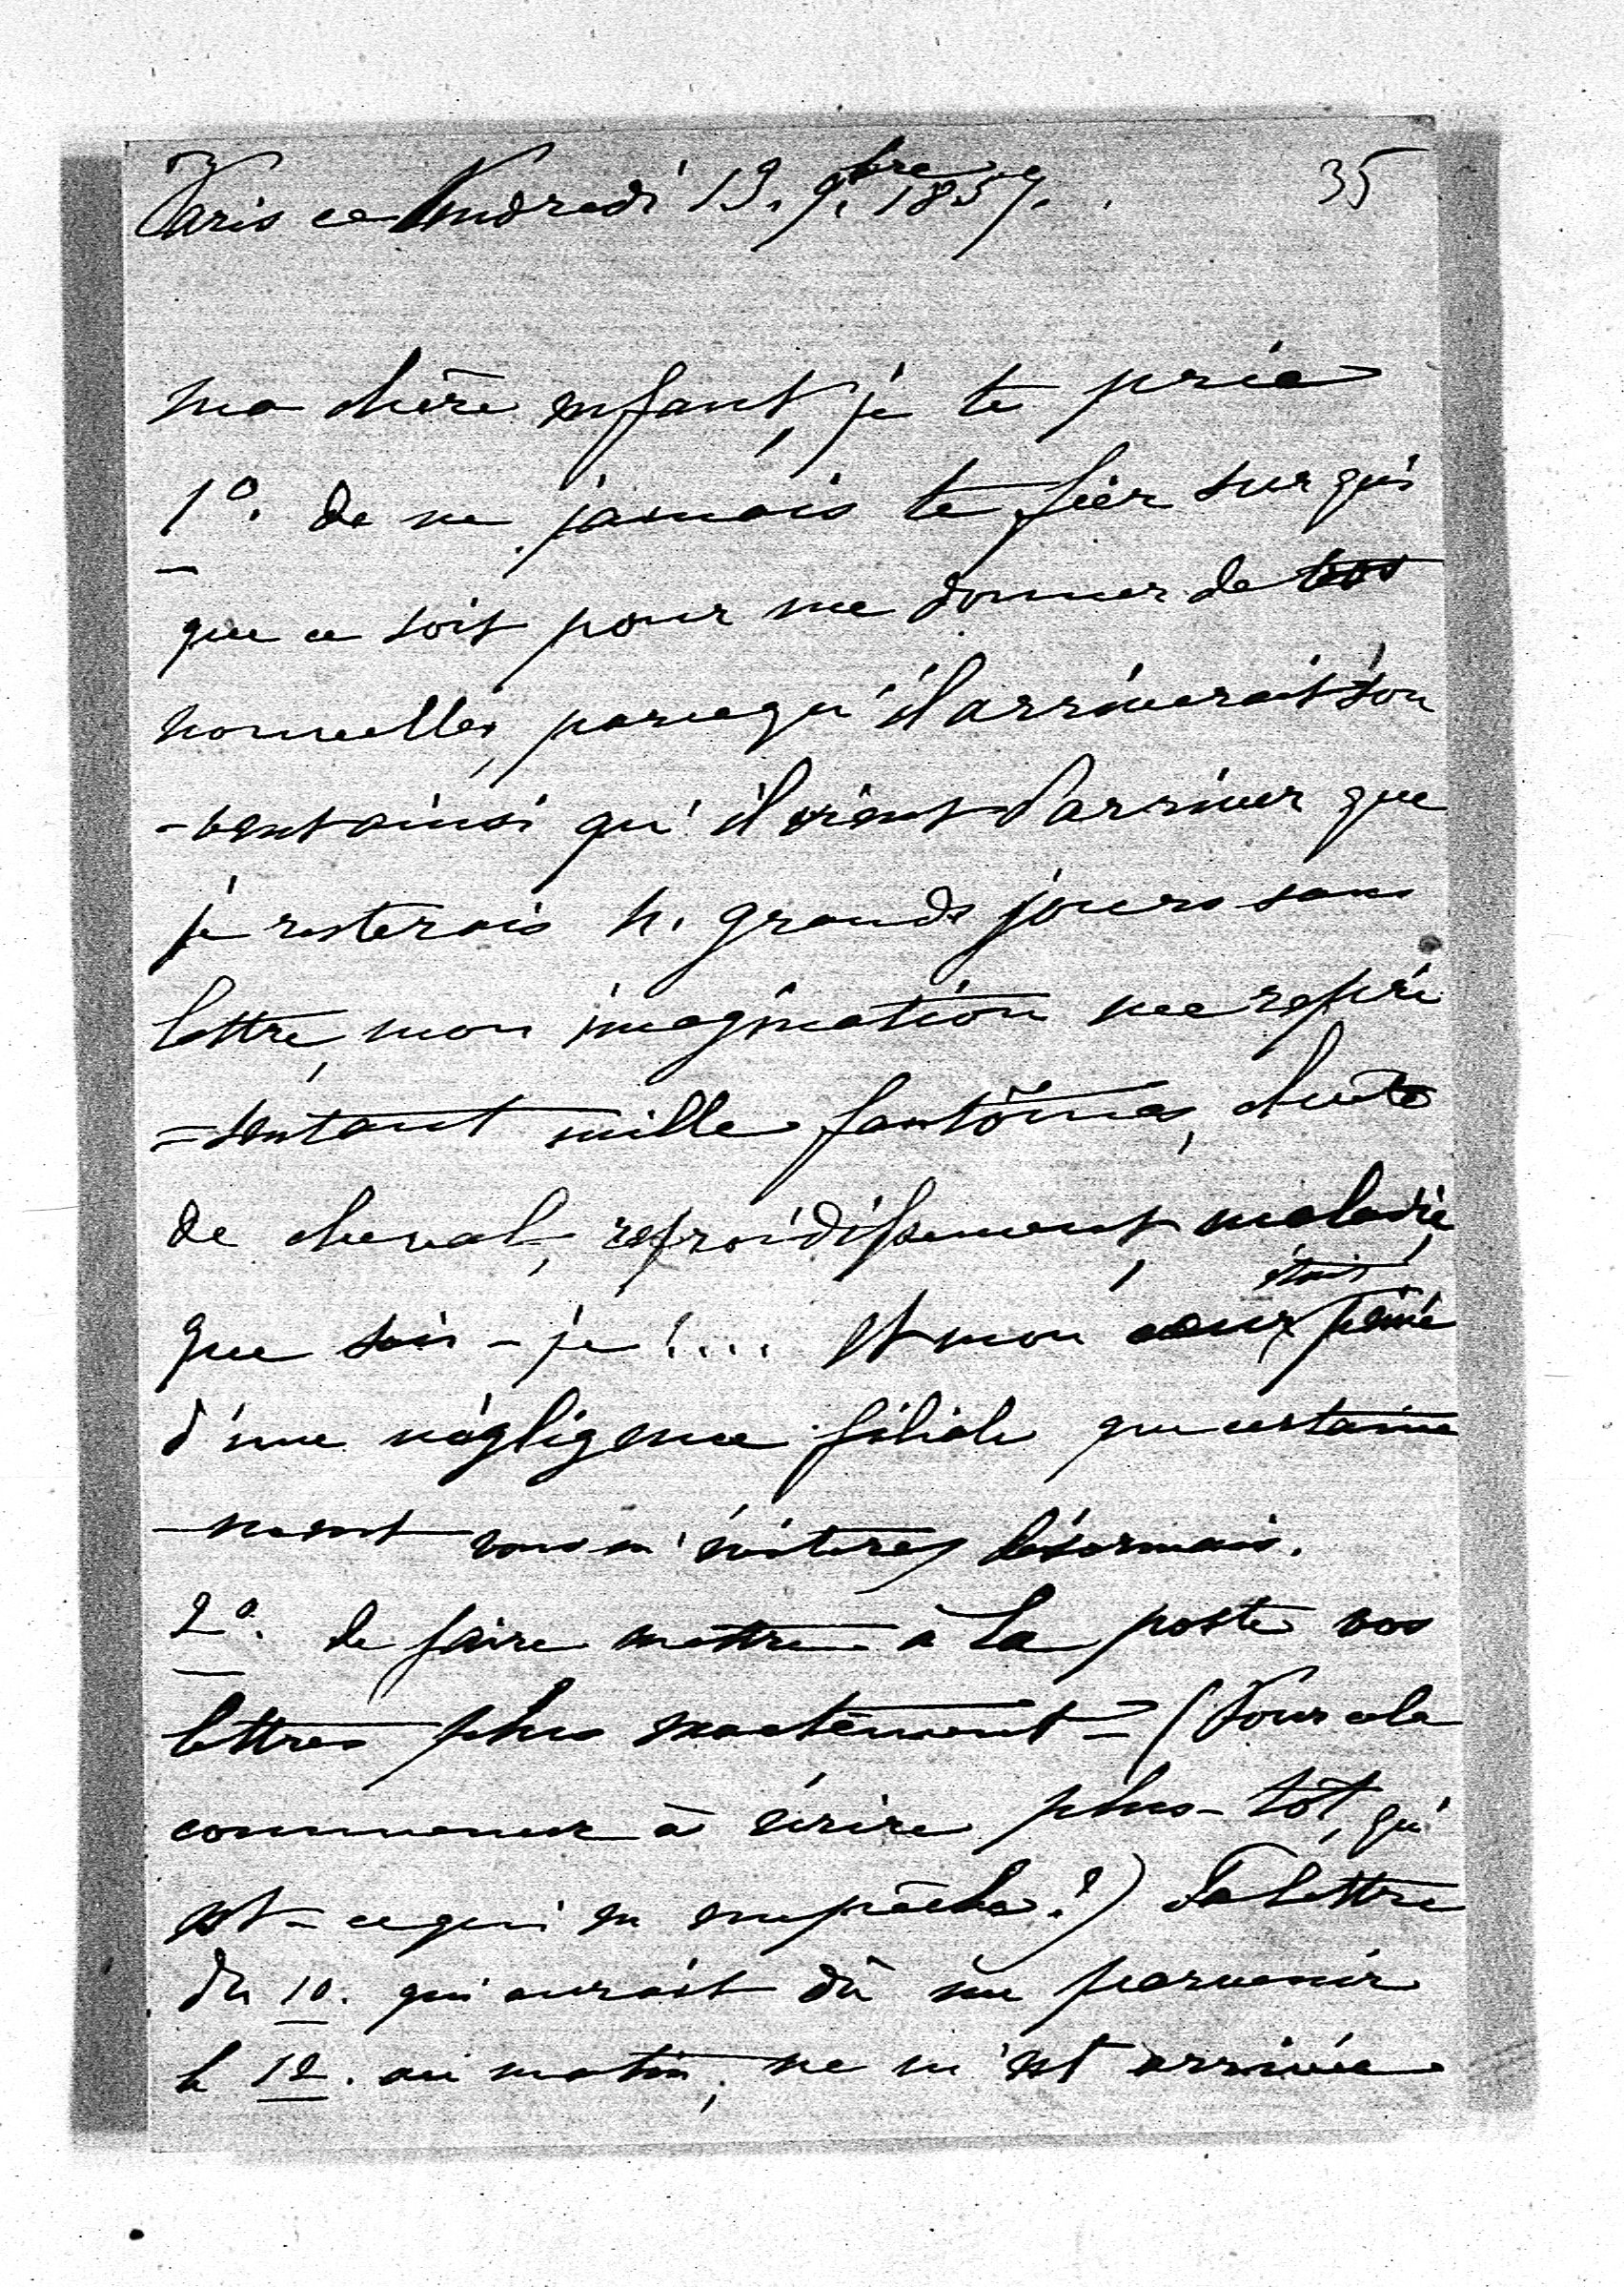 Paris ce Vendredi 13. 9.bre 1857. 35
ma chère enfant, je te prie
1º. de ne jamais te fier sur qui
que ce soit pour me donner de tes
nouvelles, parcequ'il arriverait sou
-vent ainsi qu'il vient d'arriver que
je resterais 4. grands jours sans
lettre, mon imagination me repré
=sentant mille fantômes, chute
de cheval, refroidissement, maladie
que sais-je !.... Et mon cœur était peiné
d'une négligence filiale que certaine
-ment vous m'éviterez désormais.
2º. de faire mettre à la poste vos
lettres plus exactement = (Pour cela
commencer à écrire plus-tôt, qu'
est-ce qui en empêche ?) Ta lettre
du 10. qui aurait dû me parvenir
le 12. au matin, ne m'est arrivée